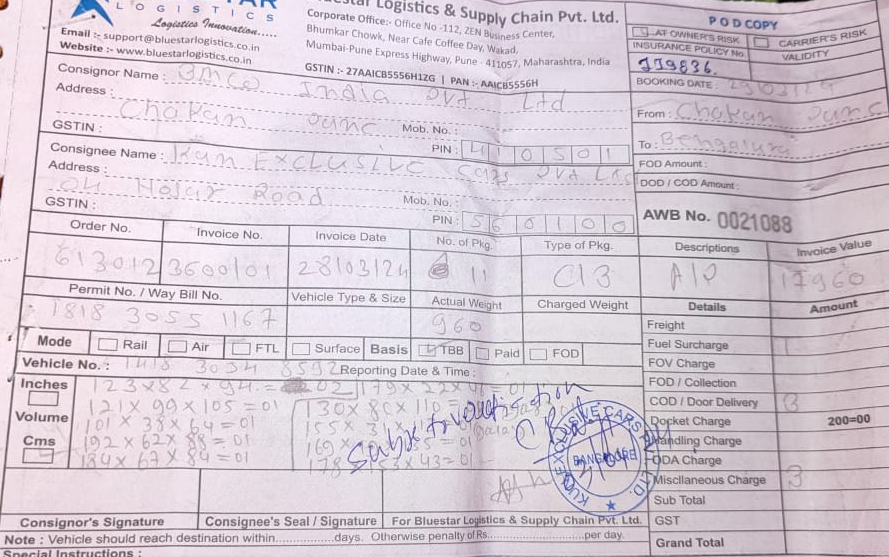 LOGISTICS
Logistics Innovation.....
Email :- support@bluestarlogistics.co.in
Website :- www.bluestarlogistics.co.in
Logistics & Supply Chain Pvt. Ltd.
Corporate Office:- Office No -112, ZEN Business Center,
Bhumkar Chowk, Near Cafe Coffee Day, Wakad,
Mumbai-Pune Express Highway, Pune - 411057, Maharashtra, India
GSTIN :- 27AAICB5556H1ZG | PAN :- AAICB5556H
POD COPY
AT OWNER'S RISK CARRIER'S RISK
INSURANCE POLICY No. VALIDITY
119836.
BOOKING DATE :
Consignor Name : India Pvt Ltd
Address :
Chakan Pune Mob. No. :
GSTIN : PIN : 410501
From : Chakan Pune
To : Bengaluru
Consignee Name : Kun Exclusive Cars Pvt Ltd
Address :
Road Mob. No. :
GSTIN : PIN : 560100
FOD Amount :
DOD / COD Amount :
AWB No. 0021088
Order No. Invoice No. Invoice Date No. of Pkg. Type of Pkg. Descriptions Invoice Value
613012 3600101 28/03/24 11 17960
Permit No. / Way Bill No. Vehicle Type & Size Actual Weight Charged Weight Details Amount
1818 3055 1167 960
Freight
Mode Rail Air FTL Surface Basis TBB Paid FOD
Fuel Surcharge
Vehicle No. : Reporting Date & Time :
FOV Charge
Inches 123x82x94.= 02
FOD / Collection
121x99x105=01 130x80x110=
COD / Door Delivery
Volume 101x38x64=01
Docket Charge 200=00
192x62x88=01
Handling Charge
Cms 184x67x84=01 53x43=01
ODA Charge
KUN EXCLUSIVE CARS LTD.
BANGALORE
Miscllaneous Charge
Sub Total
Consignor's Signature Consignee's Seal / Signature For Bluestar Logistics & Supply Chain Pvt. Ltd. GST
Note : Vehicle should reach destination within..............days. Otherwise penalty of Rs..............per day. Grand Total
Special Instructions :